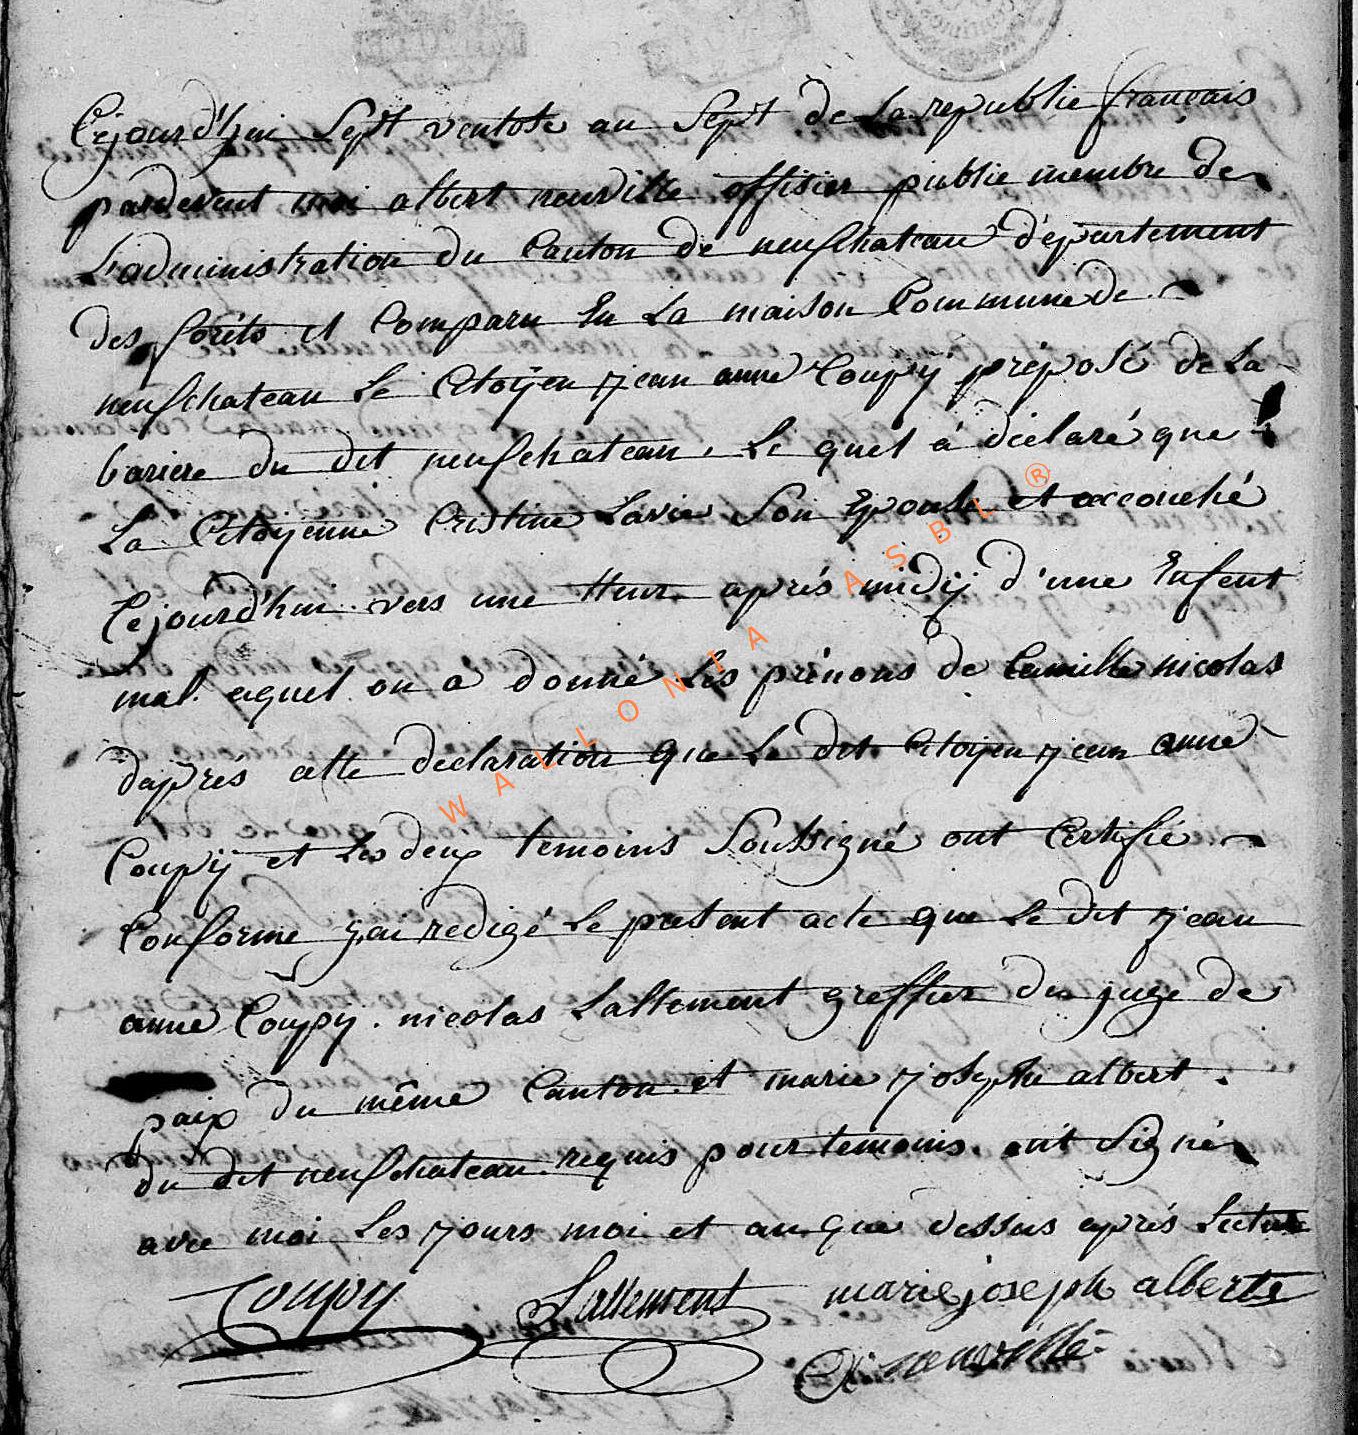 Cejourd'hui Sept ventose an Sept de La republie français
pardevent moi albert neuville offisier publie membre de
L'administration du Canton de neufchateau departement
des forêts et Comparu En La maison Commune de
neufchateau Le Citoÿen jean anne Coupÿ préposé de La
bariere du dit neufchateau, Le quel à déclaré que
La Citoÿenne Cristine Lavie Son Epouse et accouché
Cejourd'hui vers une Heur après midij d'une Enfent
mal. aquel on a donné Les prénons de Camille nicolas
daprés cette declaration que Le dit Citoÿen jean anne
Coupÿ et Les deux temoins Soussigné ont Certifié
Conforme j'ai redigé Le present acte que Le dit jean
anne Coupy. nicolas Lallement greffier du juge de
paix du même Canton. et marie josephe albert.
du dit neufchateau. requis pour temoins. ont Signé
avec moi Les jours moi et an que dessus après Lecture
Coupy Lallement marie joseph alberte
A neuville
WALLONIA ASBL ®